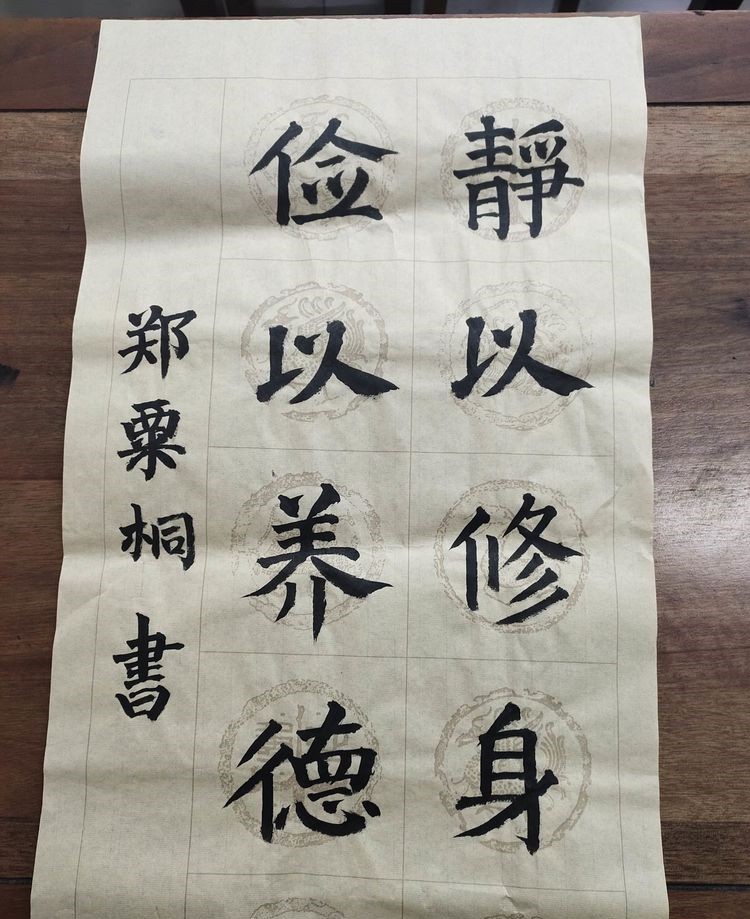 靜以修身
俭以养德
郑粟桐书